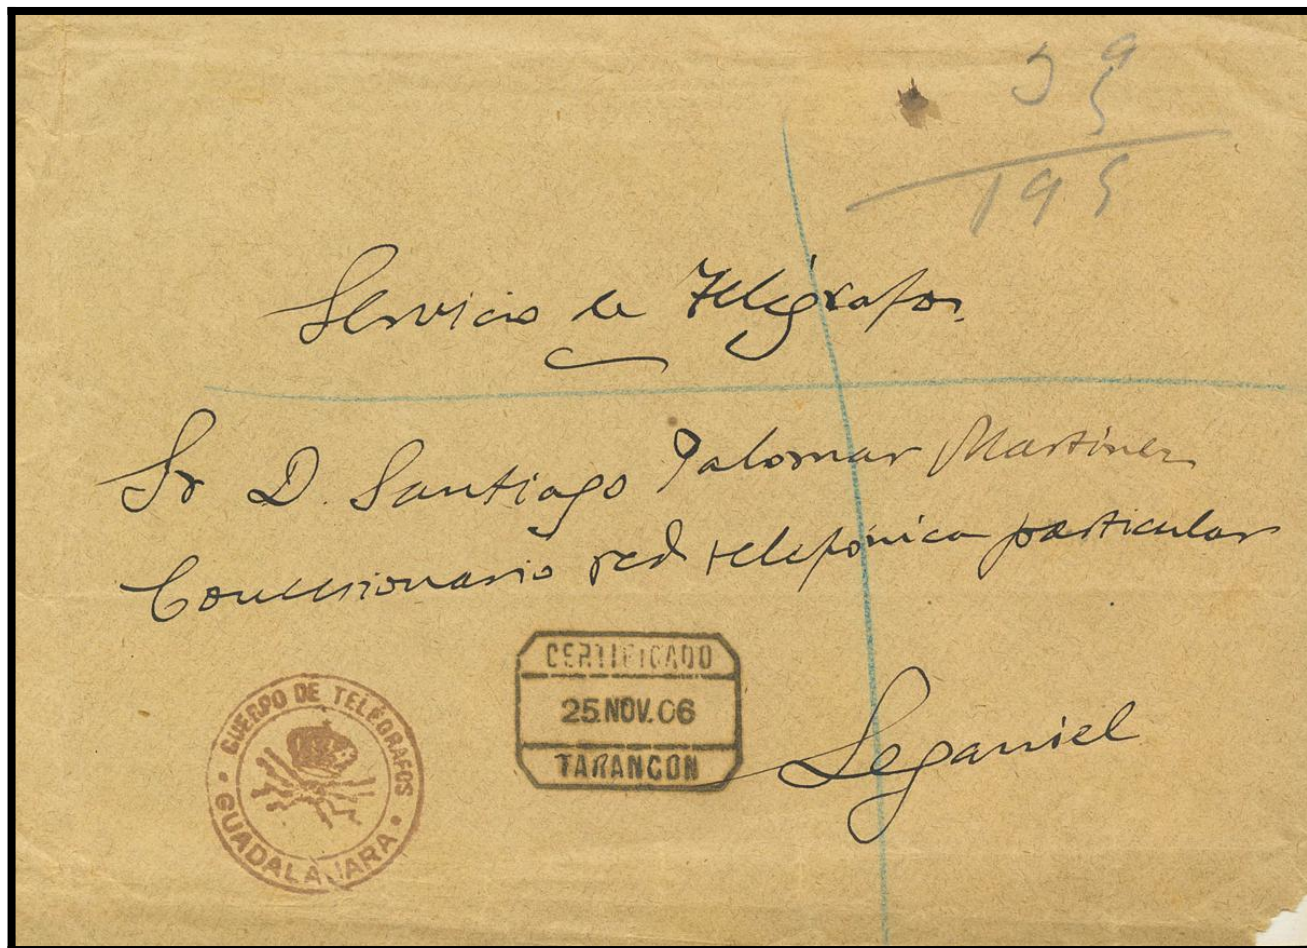 39
5
195
Servicio de Telégrafos.
Sr D. Santiago Palomar Martinez
Concesionario red telefónica particular
CERTIFICADO
25.NOV.06
TARANCON
Leganiel
CUERPO DE TELÉGRAFOS
GUADALAJARA